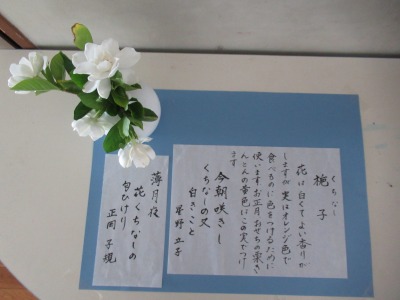 くちなし
梔子
花は白くてよい香りが
しますが実はオレンジ色で
食べものに色をつけるために
使います。お正月おせちの栗き
んとんの黄色はこの実でつけ
ます
今朝咲きし
くちなしの又
白きこと
星野立子
薄月夜
花くちなしの
匂ひけり
正岡子規